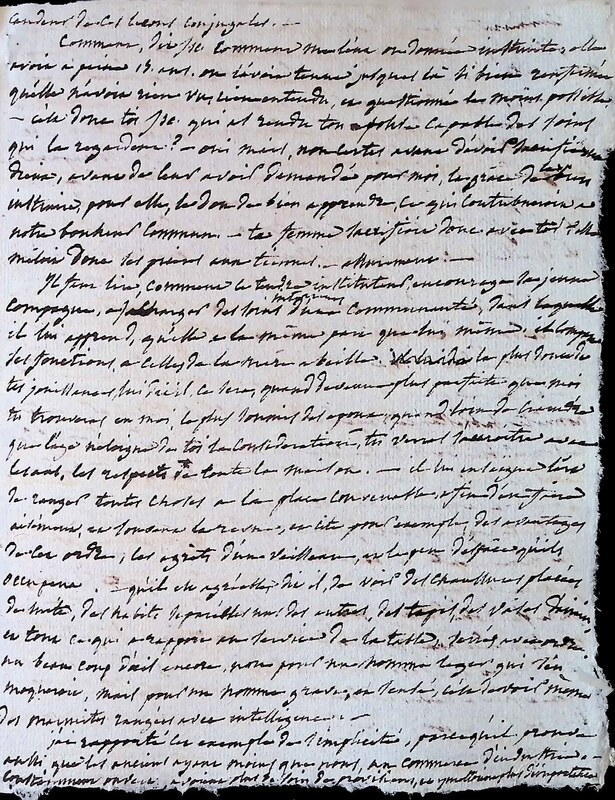 candeur de ces leçons conjugales. —
Comment, dit Isc. comment ne l'eut on donnée instruite, elle
avoit à peine 15. ans. on l'avoit tenue jusques là si bien renfermée
qu'elle n'avoit rien vu, rien entendu, et questionné le moins possible
— c'est donc toi Isc. qui as rendu ton capable des soins
qui la regardent? — oui mais, non certes avant d'avoir sacrifié aux
dieux, avant de leur avoir demandé pour moi, la grâce de la bien
instruire, pour elle, le don de bien apprendre, ce qui contribueroit à
notre bonheur commun. — ta femme sacrifioit donc avec toi? elle
mêloit donc ses prières aux tiennes. — assurement. —
Il faut lire, comment le tendre instituteur, encourage sa jeune
compagne, à des soins d'une communauté, dans laquelle
il lui apprend, qu'elle a la même part que lui même, et compare
ses fonctions à celles de la mère abeille. la plus douce de
tes jouissances, lui dit il, ce sera, quand devenue plus parfaite que moi
tu trouveras en moi, le plus soumis des epoux, quand loin de craindre
que l'age n'eloigne de toi la consideration, tu verras s'accroitre avec
les ans, les respects de toute la maison. — il lui enseigne l'art
de ranger toutes choses à la place convenable, afin d'en faire
aisément, et souvent la revue, et cite pour exemple, des avantages
de cet ordre, les agrêts d'un vaisseau, et le peu d'espace qu'ils
occupent — qu'il est agréable, dit il, de voir des chaussures placées
de suite, des habits separés les uns des autres, des tapis, des vases d'airain
et tout ce qui a rapport au service de la table, serrés avec ordre
un beau coup d'œil encore, non pour un homme leger qui s'en
moqueroit, mais pour un homme grave et sensé, c'est de voir même
des marmites rangées avec intelligence. —
j'ai rapporté cet exemple de simplicité, parcequ'il prouve
aussi que les anciens ayant moins que nous, un commerce d'industrie
constamment ouvert, avoient plus de soin de provisions, et y mettoient plus d'importance